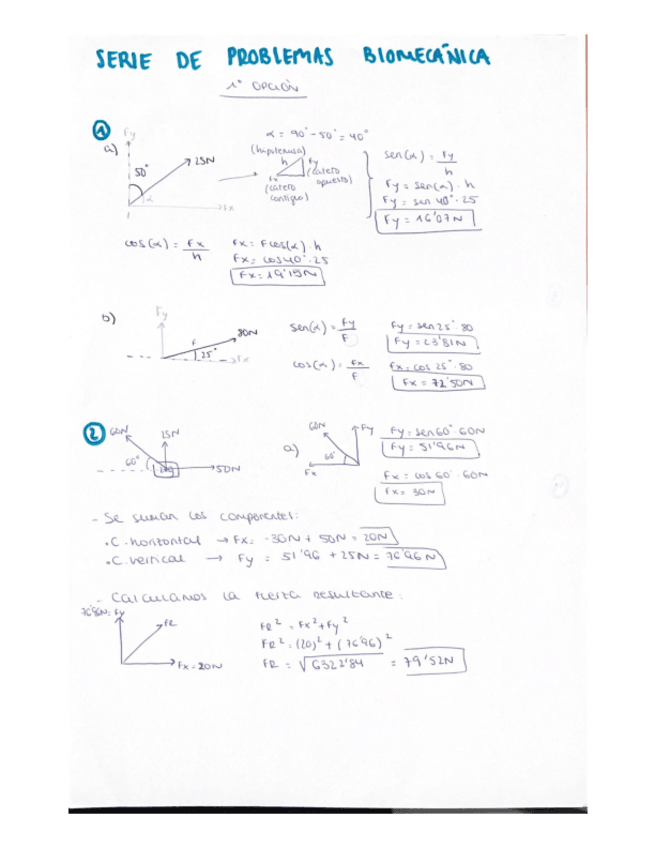 SERIE DE PROBLEMAS BIOMECÁNICA
1ª OPCIÓN
1
a)
Fy
50°
25N
α
Fx
α = 90° - 50° = 40°
(hipotenusa)
h
Fy
(cateto opuesto)
Fx
(cateto contiguo)
sen(α) = Fy/h
Fy = sen(α) · h
Fy = sen 40° · 25
Fy = 16'07N
cos(α) = Fx/h
Fx = Fcos(α) · h
Fx = cos40° · 25
Fx = 19'15N
b)
Fy
F
80N
25°
Fx
sen(α) = Fy/F
Fy = sen 25° · 80
Fy = 23'81N
cos(α) = Fx/F
Fx = cos 25° · 80
Fx = 72'50N
2
60N
25N
60°
50N
a)
60N
Fy
60°
Fx
Fy = sen60° · 60N
Fy = 51'96N
Fx = cos 60° · 60N
Fx = 30N
- Se suman los componentes:
• C. horizontal → Fx = -30N + 50N = 20N
• C. vertical → Fy = 51'96 + 25N = 76'96N
- Calculamos la fuerza resultante:
76'96N = Fy
FR
Fx = 20N
FR² = Fx² + Fy²
FR² = (20)² + (76'96)²
FR = √6322'84 = 79'52N